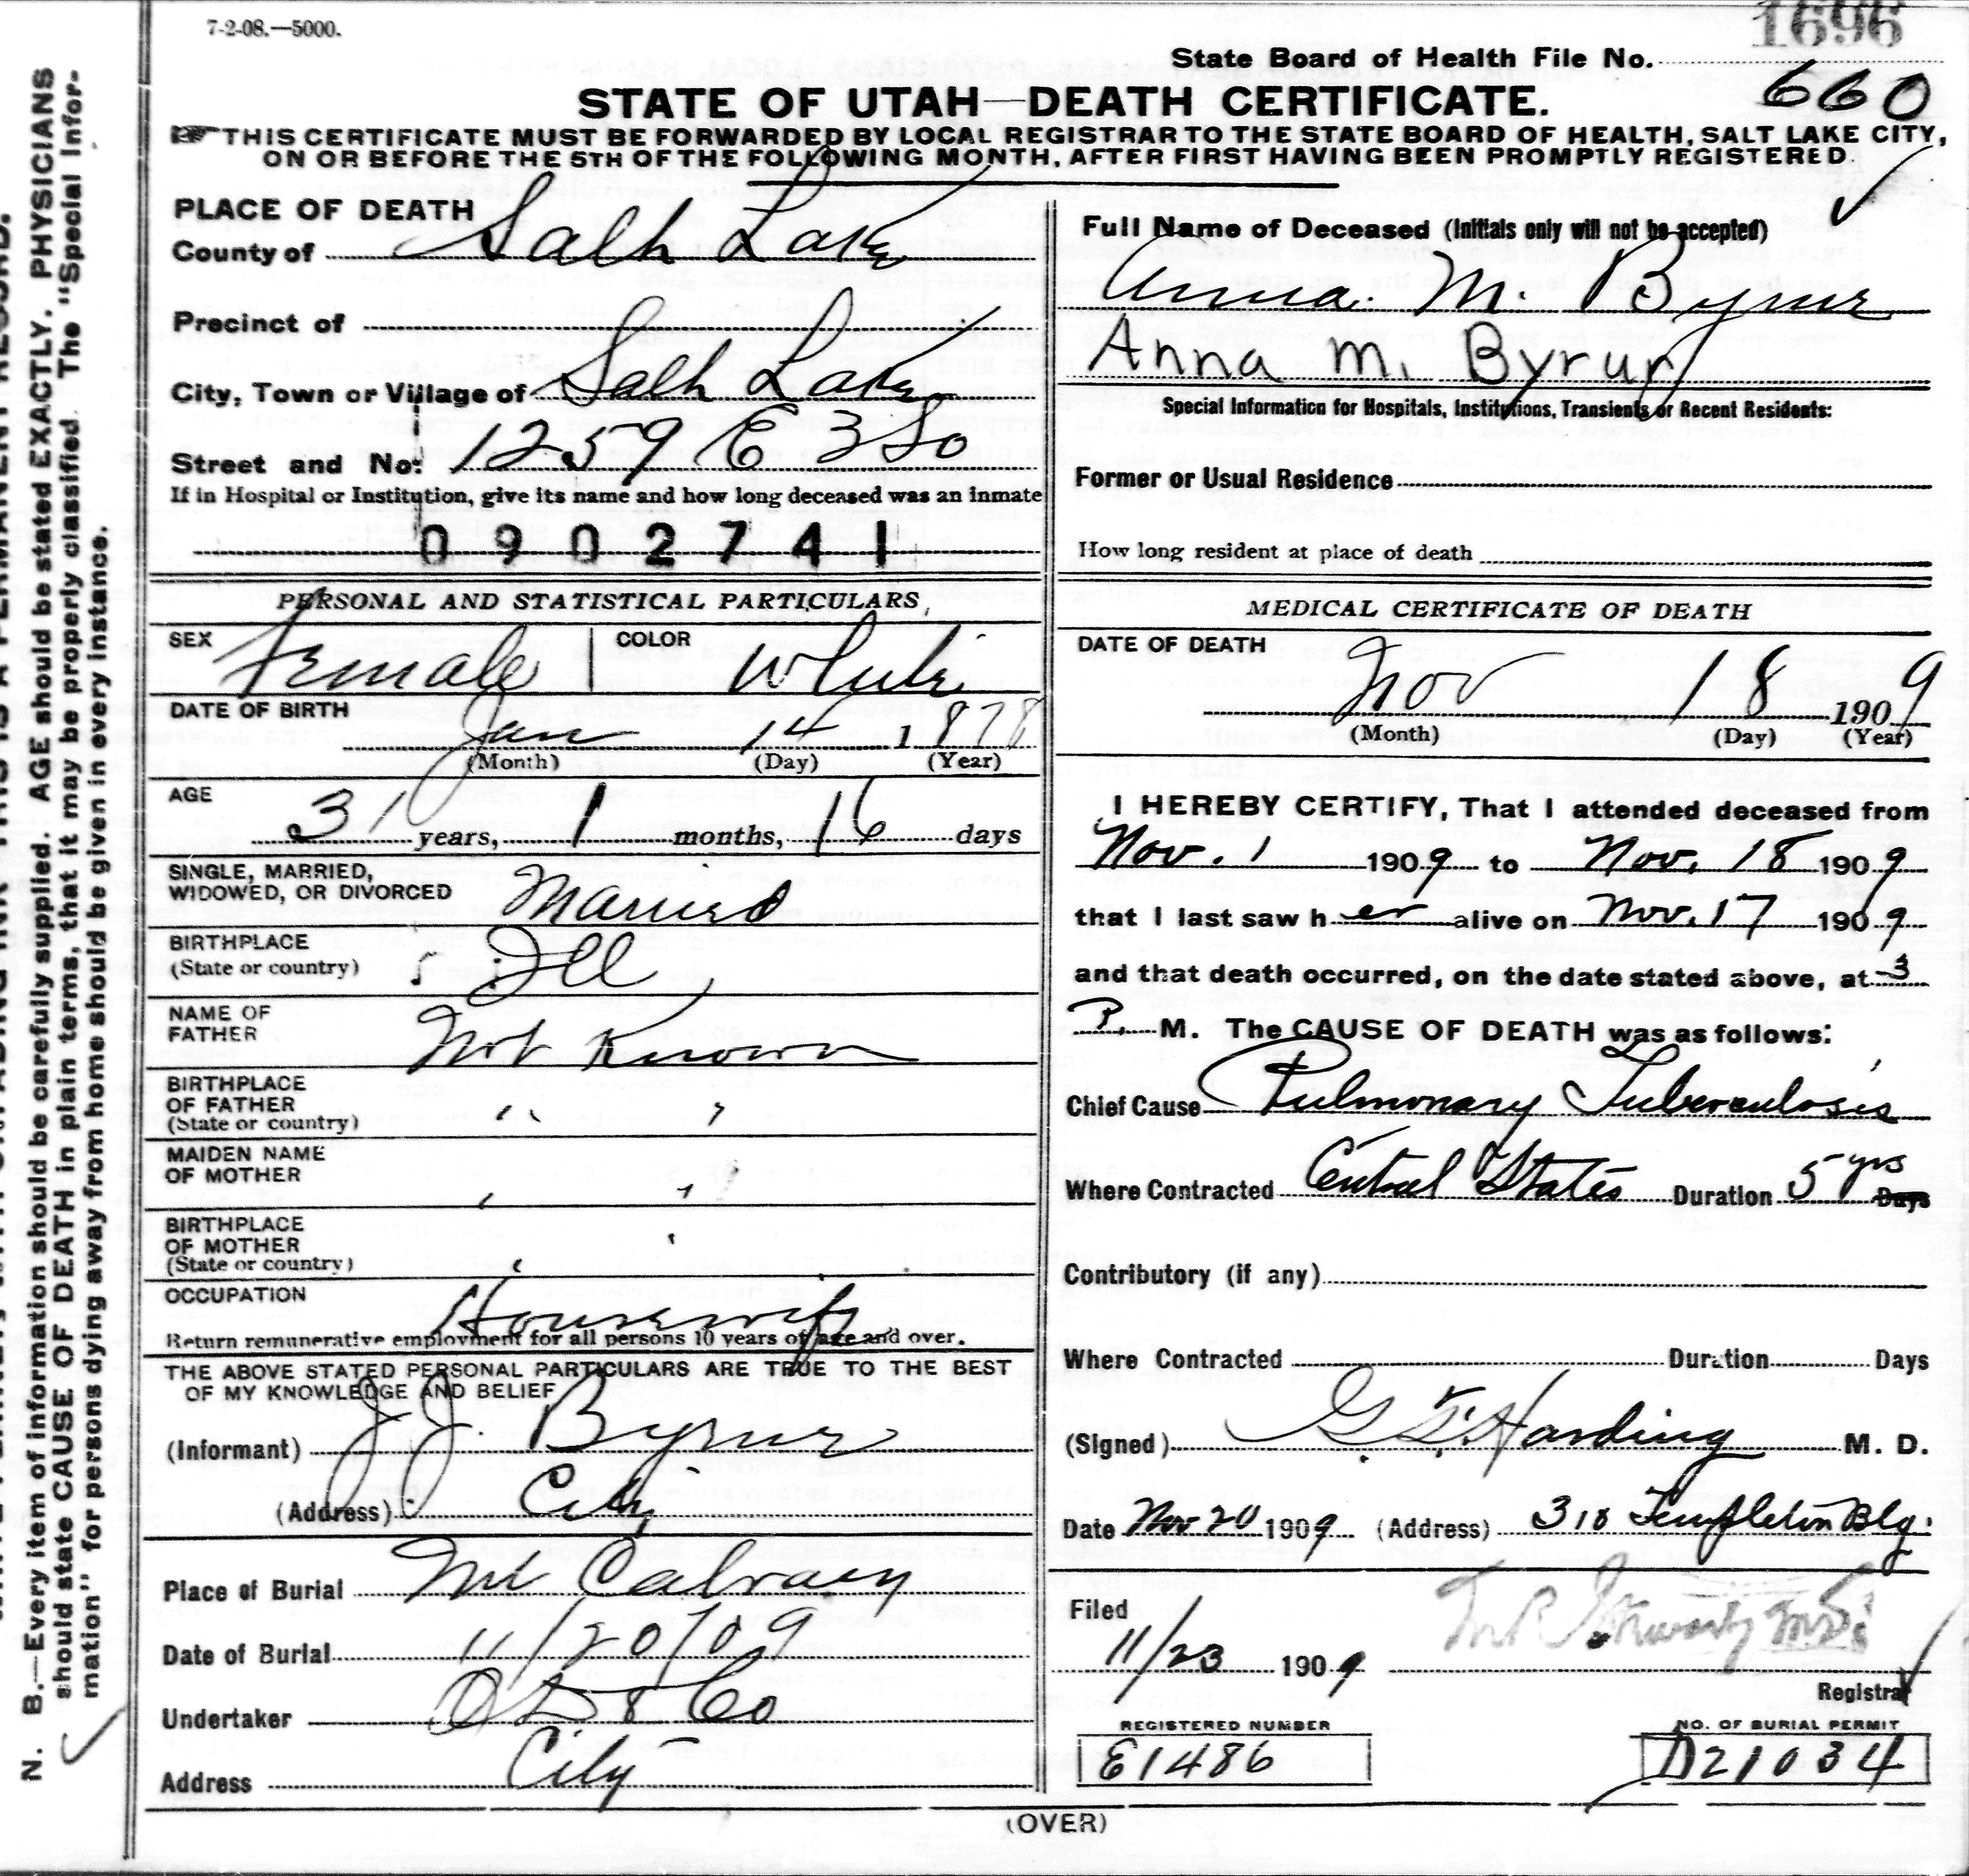 7-2-08.—5000.
1696
State Board of Health File No.
660
STATE OF UTAH—DEATH CERTIFICATE.
THIS CERTIFICATE MUST BE FORWARDED BY LOCAL REGISTRAR TO THE STATE BOARD OF HEALTH, SALT LAKE CITY,
ON OR BEFORE THE 5TH OF THE FOLLOWING MONTH, AFTER FIRST HAVING BEEN PROMPTLY REGISTERED.
PLACE OF DEATH
County of Salt Lake
Precinct of
City, Town or Village of Salt Lake
Street and No: 1259 E 3 So
If in Hospital or Institution, give its name and how long deceased was an inmate
0902741
PERSONAL AND STATISTICAL PARTICULARS
SEX Female COLOR White
DATE OF BIRTH
Jan 14 1878
(Month) (Day) (Year)
AGE
31 years, 1 months, 16 days
SINGLE, MARRIED,
WIDOWED, OR DIVORCED Married
BIRTHPLACE
(State or country) Ill
NAME OF
FATHER Not Known
BIRTHPLACE
OF FATHER
(State or country) " "
MAIDEN NAME
OF MOTHER " "
BIRTHPLACE
OF MOTHER
(State or country) " "
OCCUPATION Housewife
Return remunerative employment for all persons 10 years of age and over.
THE ABOVE STATED PERSONAL PARTICULARS ARE TRUE TO THE BEST
OF MY KNOWLEDGE AND BELIEF
(Informant) J J. Byrne
(Address) City
Place of Burial Mt Calvary
Date of Burial 11/20/09
Undertaker O D & Co
Address City
Full Name of Deceased (Initials only will not be accepted)
Anna. M. Byrne
Anna M. Byrur
Special Information for Hospitals, Institutions, Transients or Recent Residents:
Former or Usual Residence
How long resident at place of death
MEDICAL CERTIFICATE OF DEATH
DATE OF DEATH
Nov 18 1909
(Month) (Day) (Year)
I HEREBY CERTIFY, That I attended deceased from
Nov. 1 1909 to Nov. 18 1909
that I last saw her alive on Nov. 17 1909
and that death occurred, on the date stated above, at 3
P. M. The CAUSE OF DEATH was as follows:
Chief Cause Pulmonary Tuberculosis
Where Contracted Central States Duration 5 yrs Days
Contributory (if any)
Where Contracted Duration Days
(Signed) G. F. Harding M. D.
Date Nov 20 1909 (Address) 318 Templeton Blg.
Filed
11/23 1909
Registrar
REGISTERED NUMBER
E1486
NO. OF BURIAL PERMIT
D21034
(OVER)
N. B.—Every item of information should be carefully supplied. AGE should be stated EXACTLY. PHYSICIANS
should state CAUSE OF DEATH in plain terms, that it may be properly classified. The "Special Infor-
mation" for persons dying away from home should be given in every instance.